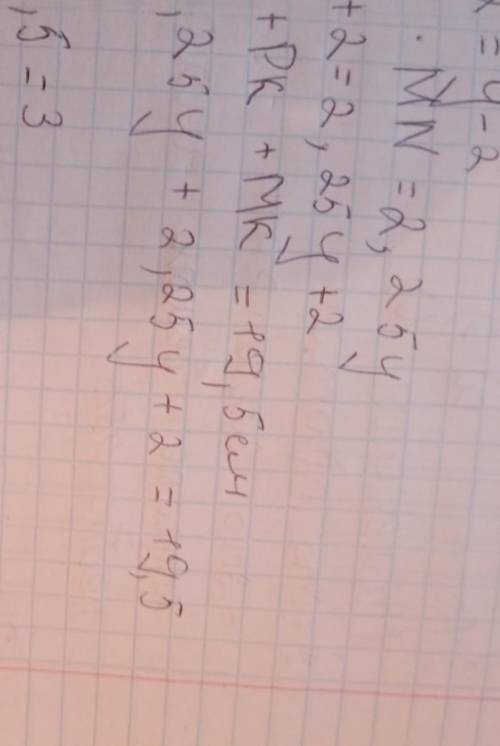 = y - 2
· MN = 2,25y
+ 2 = 2,25y + 2
+ PK + MK = 19,5 см
,25y + 2,25y + 2 = 19,5
,5 = 3